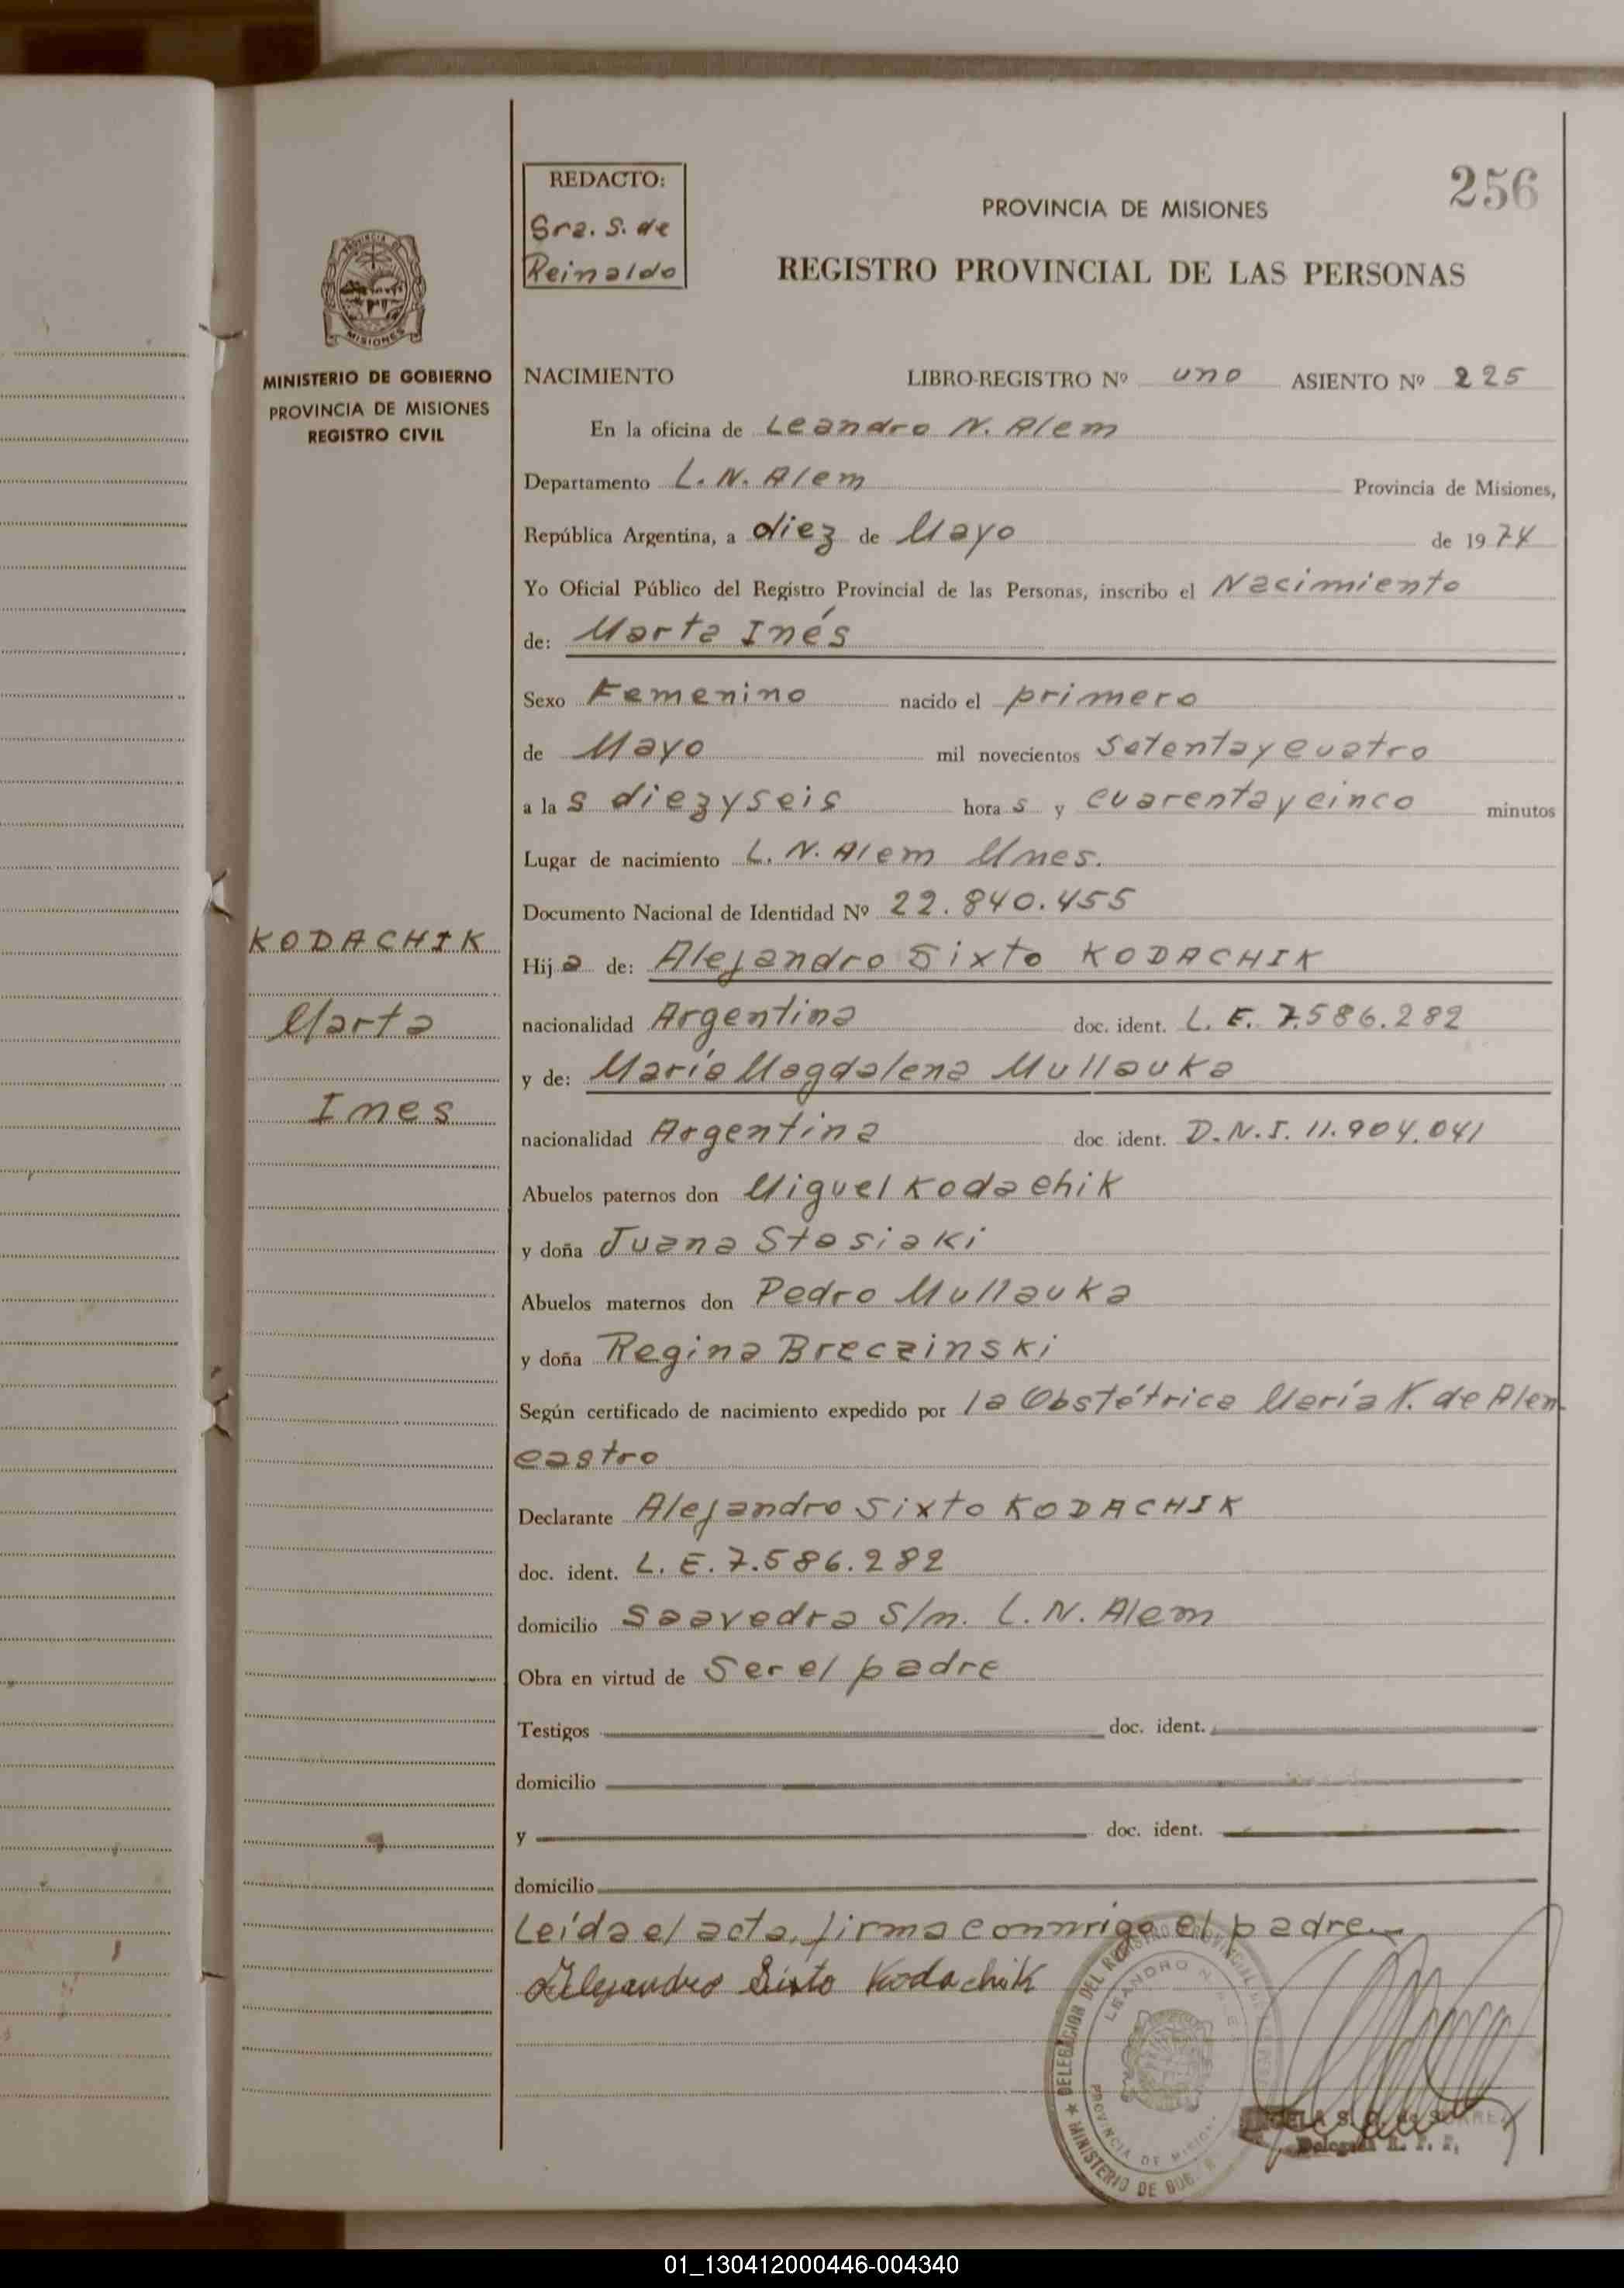 256
REDACTO:
Sra. S. de
Reinaldo
PROVINCIA DE MISIONES
REGISTRO PROVINCIAL DE LAS PERSONAS
MISIONES
MINISTERIO DE GOBIERNO
PROVINCIA DE MISIONES
REGISTRO CIVIL
NACIMIENTO LIBRO-REGISTRO Nº uno ASIENTO Nº 225
En la oficina de Leandro N. Alem
Departamento L. N. Alem Provincia de Misiones,
República Argentina, a diez de Mayo de 1974
Yo Oficial Público del Registro Provincial de las Personas, inscribo el Nacimiento
de: Marta Inés
Sexo Femenino nacido el primero
de Mayo mil novecientos setenta y cuatro
a las diez y seis horas y cuarenta y cinco minutos
Lugar de nacimiento L. N. Alem Mnes.
Documento Nacional de Identidad Nº 22.840.455
KODACHIK
Marta
Ines
Hija de: Alejandro Sixto KODACHIK
nacionalidad Argentina doc. ident. L. E. 7.586.282
y de: María Magdalena Mullauka
nacionalidad Argentina doc. ident. D.N.I. 11.904.041
Abuelos paternos don Miguel Kodachik
y doña Juana Stasiaki
Abuelos maternos don Pedro Mullauka
y doña Regina Breczinski
Según certificado de nacimiento expedido por la Obstétrica María K. de Alen-
castro
Declarante Alejandro Sixto KODACHIK
doc. ident. L. E. 7.586.282
domicilio Saavedra S/n. L. N. Alem
Obra en virtud de Ser el padre
Testigos doc. ident.
domicilio
y doc. ident.
domicilio
Leída el acta, firma conmigo el padre.-
Alejandro Sixto Kodachik
DELEGACION DEL REGISTRO PROVINCIAL
LEANDRO N.
PROVINCIA DE MISIO
★ MINISTERIO DE GOB.
S. G. de SUAREZ
Delegada R. P. P.
01_130412000446-004340